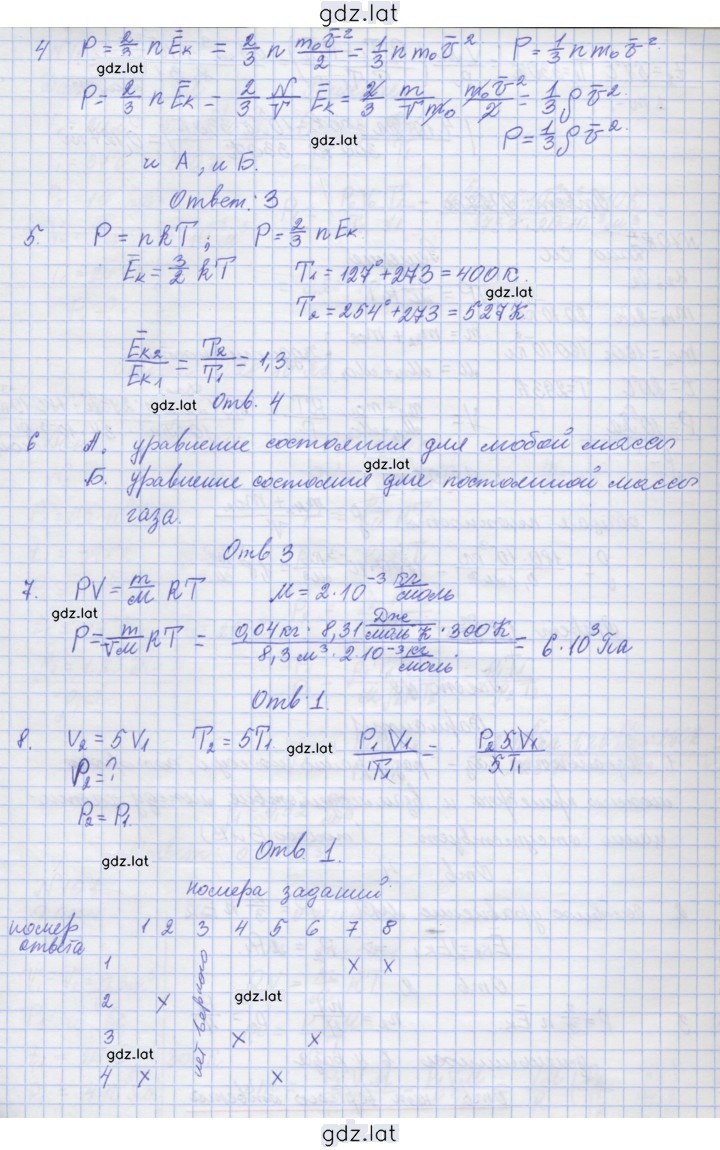 gdz.lat
4 P = 2/3 n Ēк = 2/3 n m₀v̄²/2 = 1/3 n m₀ v̄² P = 1/3 n m₀ v̄².
gdz.lat
P = 2/3 n Ēк = 2/3 N/V Ēк = 2/3 m/(V m₀) m₀v̄²/2 = 1/3 ρ v̄².
P = 1/3 ρ v̄².
gdz.lat
и А, и Б.
Ответ: 3
5. P = nkT; P = 2/3 n Ēк.
Ēк = 3/2 kT T₁ = 127° + 273 = 400К.
gdz.lat
T₂ = 254° + 273 = 527К
Ēк2/Ēк1 = T₂/T₁ = 1,3.
gdz.lat Отв. 4
6 А. уравнение состояния для любой массы
gdz.lat
Б. уравнение состояния для постоянной массы
газа.
Отв 3
7. PV = m/M RT M = 2·10⁻³ кг/моль
gdz.lat
P = m/(VM) RT = (0,04кг · 8,31 Дж/(моль К) · 300К)/(8,3 м³ · 2·10⁻³ кг/моль) = 6·10³ Па
Отв 1.
8. V₂ = 5V₁ T₂ = 5T₁ gdz.lat P₁V₁/T₁ = P₂5V₁/5T₁
P₂ = ?
P₂ = P₁.
Отв 1.
gdz.lat
номера заданий
номер ответа 1 2 3 4 5 6 7 8
1 x x
нет верного
2 x gdz.lat
3 x x
gdz.lat
4 x x
gdz.lat